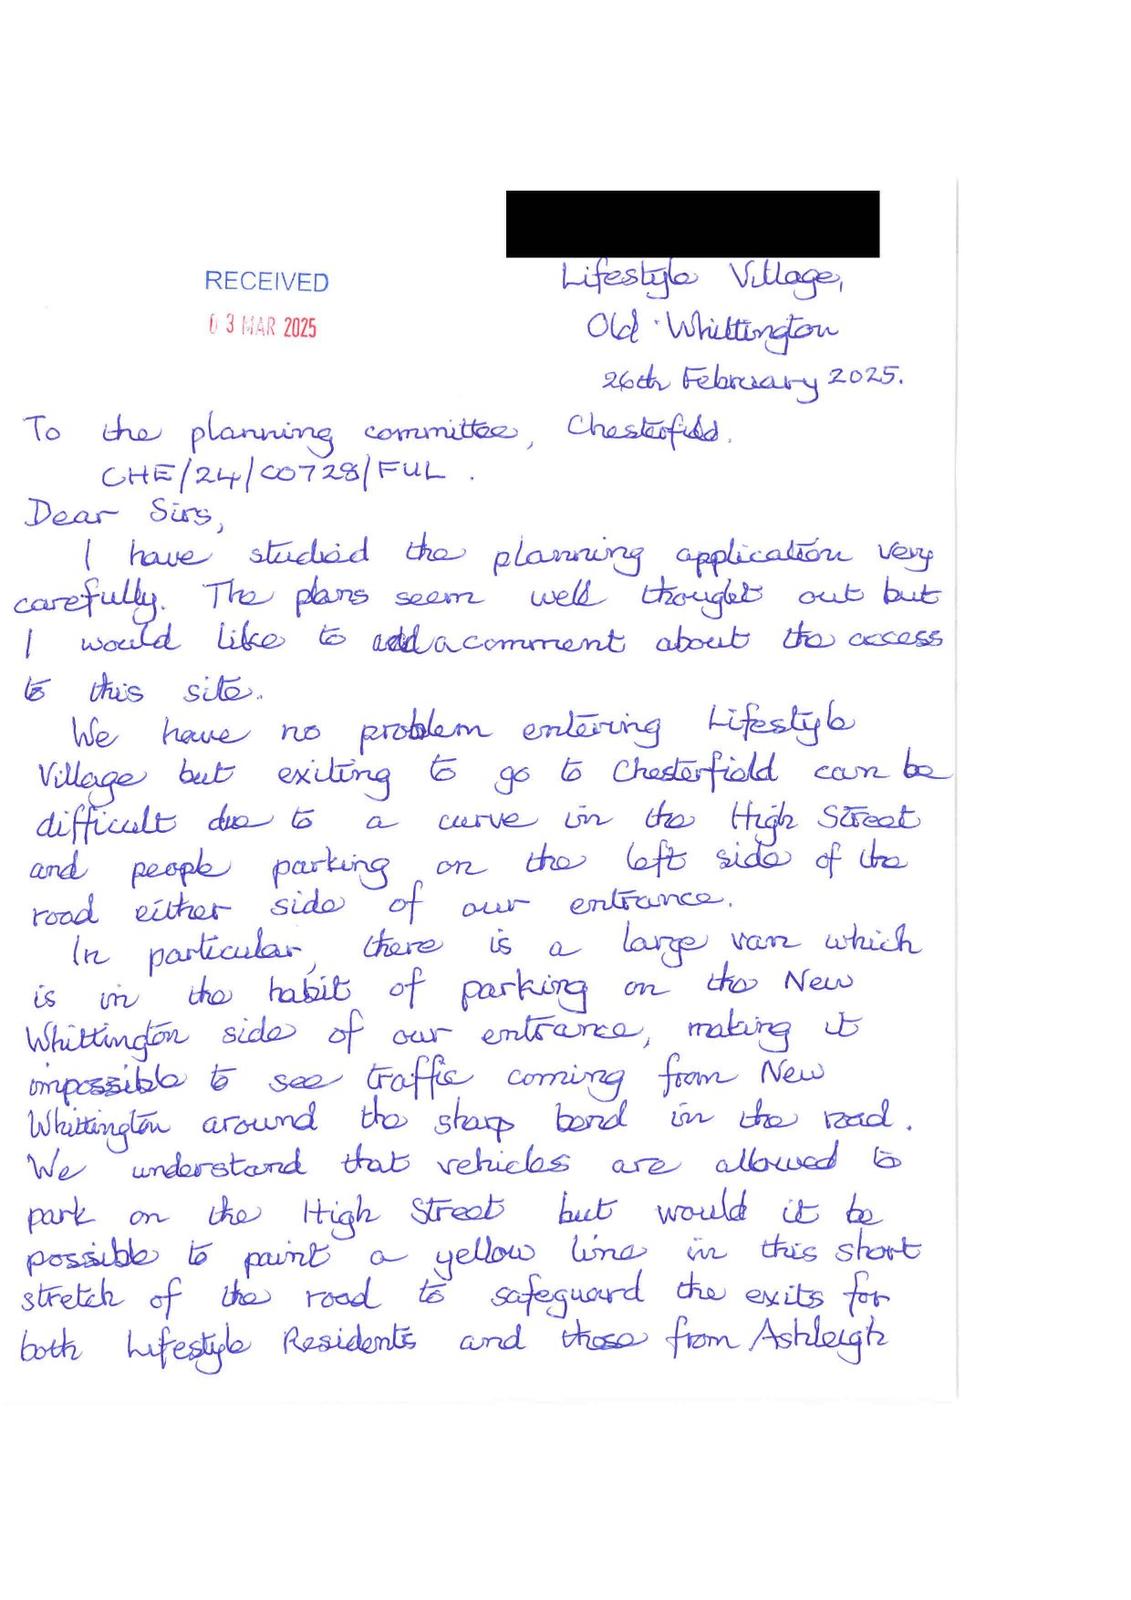 RECEIVED
03 MAR 2025
Lifestyle Village,
Old Whittington
26th February 2025.
To the planning committee, Chesterfield.
CHE/24/00728/FUL.
Dear Sirs,
I have studied the planning application very
carefully. The plans seem well thought out but
I would like to add a comment about the access
to this site.
We have no problem entering Lifestyle
Village but exiting to go to Chesterfield can be
difficult due to a curve in the High Street
and people parking on the left side of the
road either side of our entrance.
In particular, there is a large van which
is in the habit of parking on the New
Whittington side of our entrance, making it
impossible to see traffic coming from New
Whittington around the sharp bend in the road.
We understand that vehicles are allowed to
park on the High Street but would it be
possible to paint a yellow line in this short
stretch of the road to safeguard the exits for
both Lifestyle Residents and those from Ashleigh